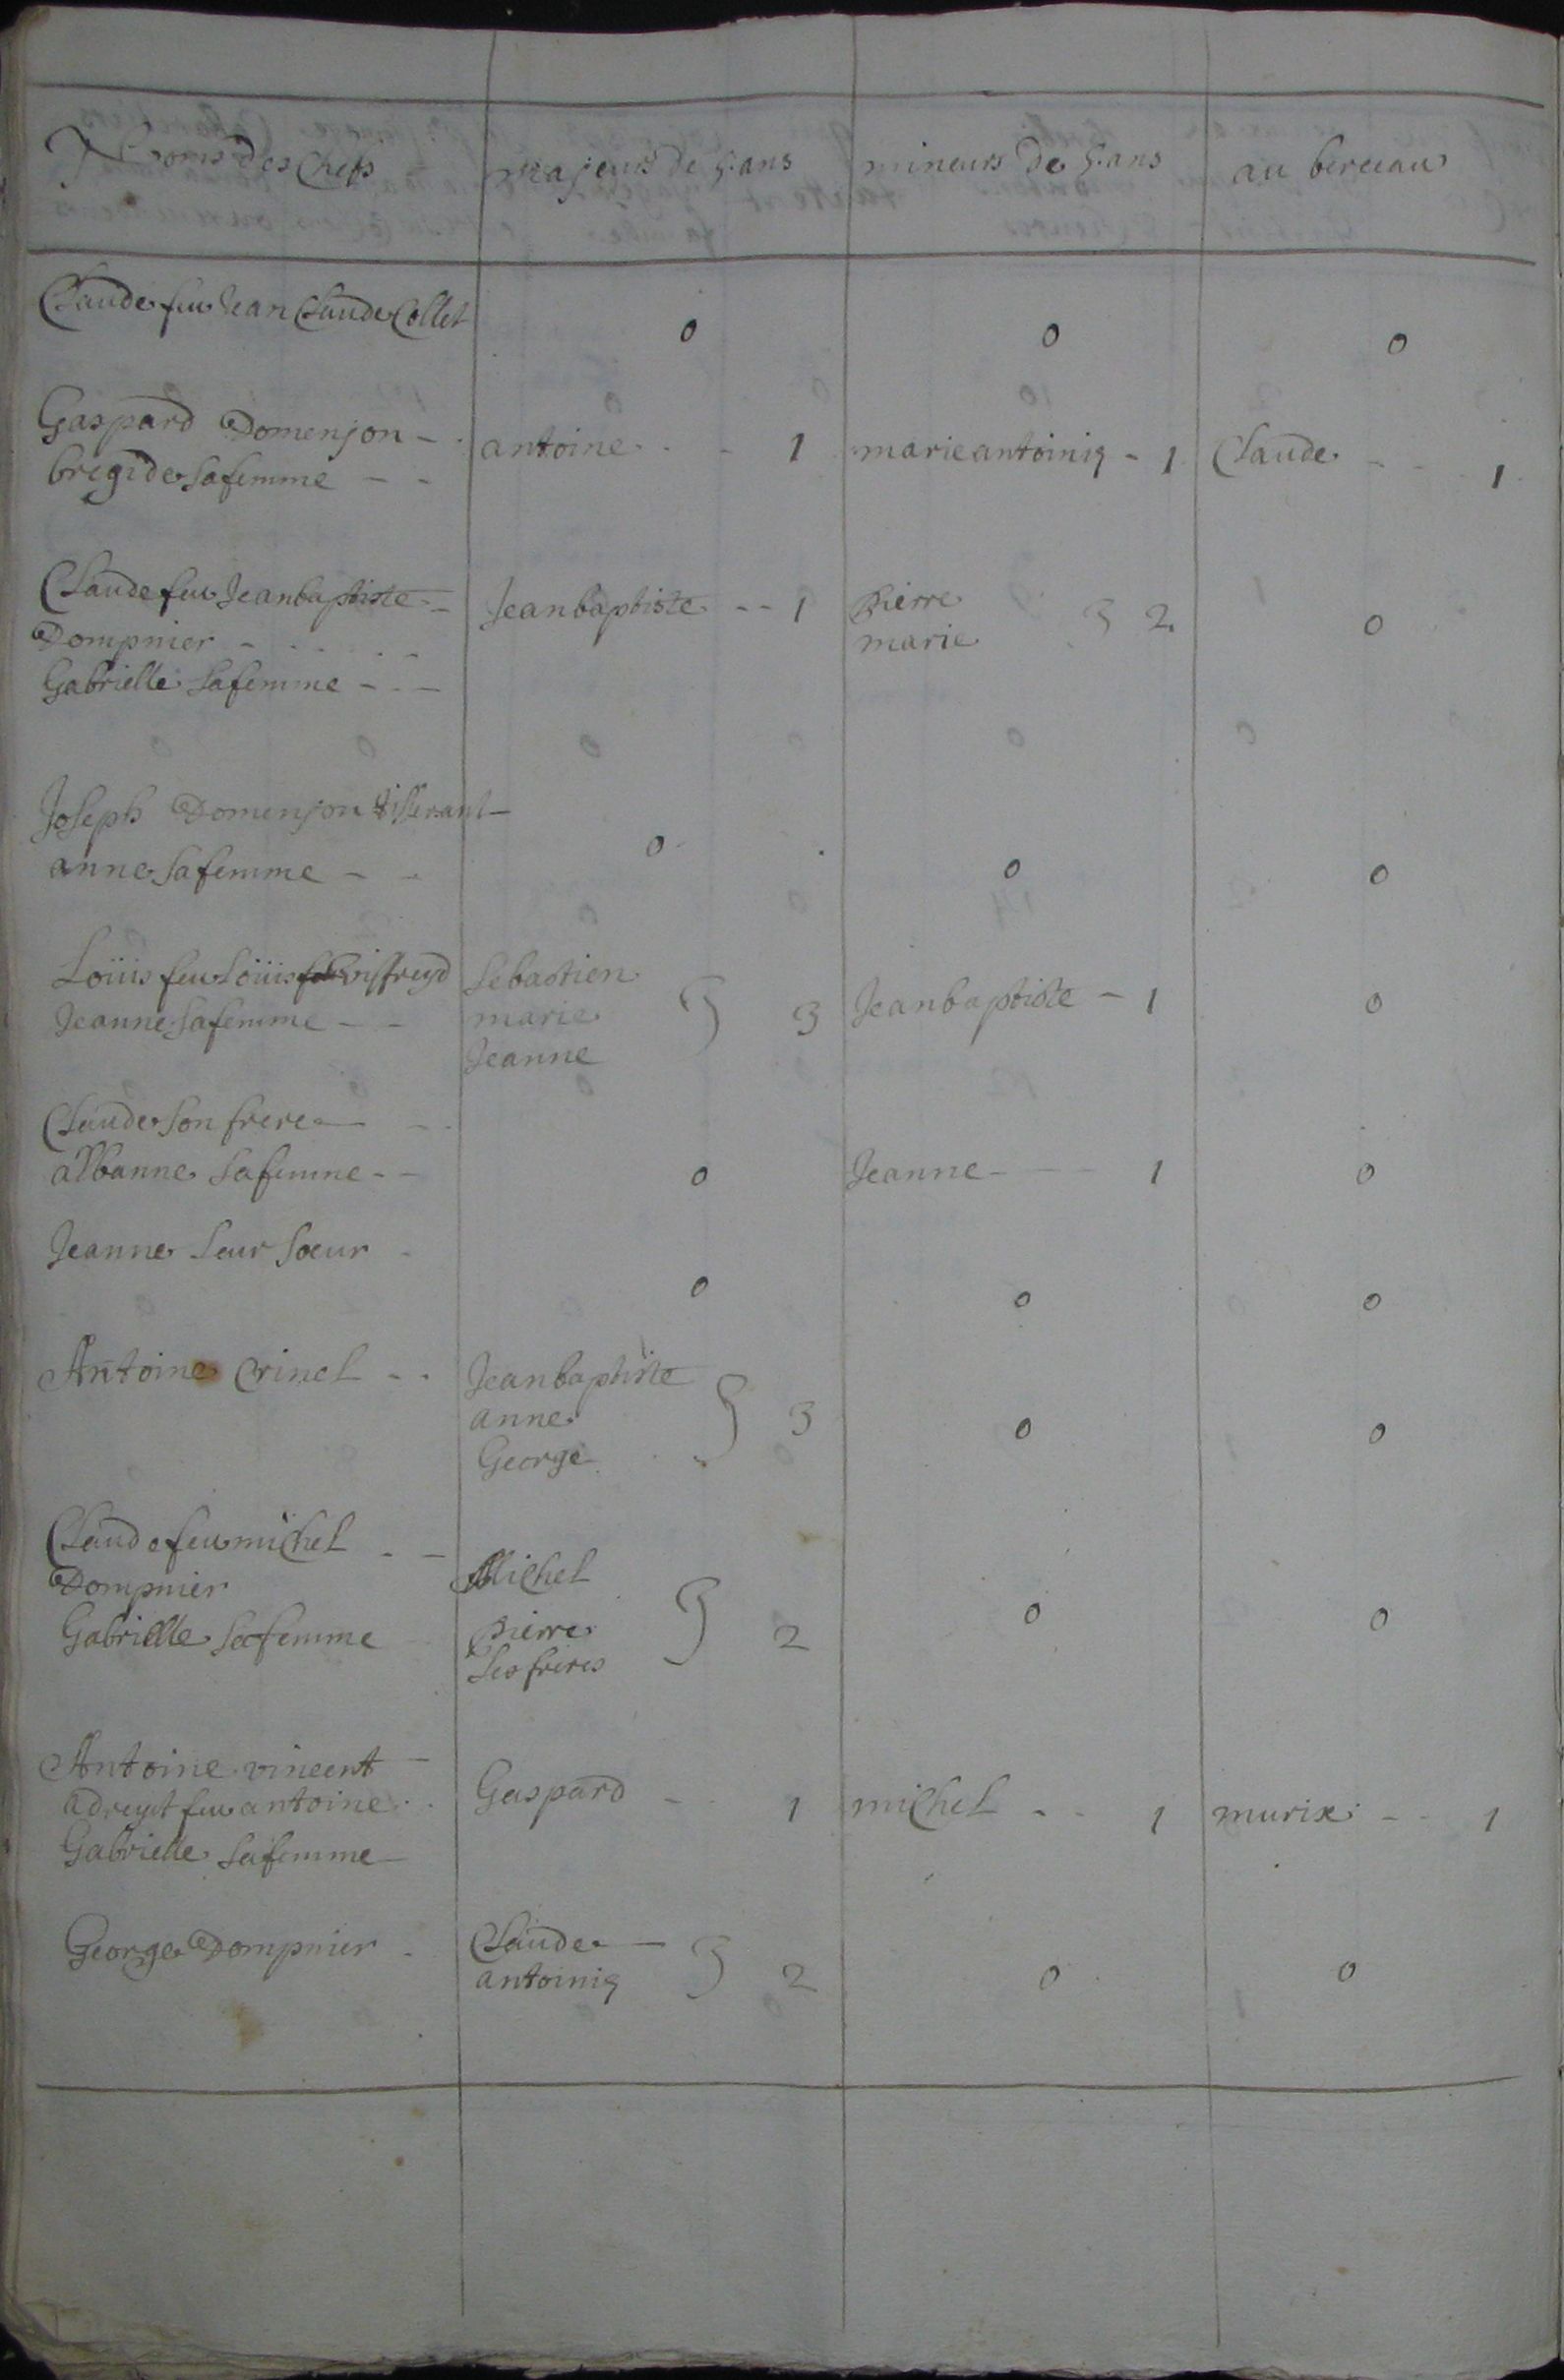 Noms des Chefs majeurs de 5 ans mineurs de 5 ans au berceau
Claude feu Jean Claude Collet 0 0 0
Gaspard Domenjon - antoine - 1 marie antoinig - 1 Claude - - 1
bregide sa femme - -
Claude feu Jeanbaptiste - Jeanbaptiste - - 1 pierre 2 0
Dompnier - marie
Gabrielle sa femme - - -
Joseph Domenjon tisserant - 0 0 0
anne sa femme - -
Loüis feu Loüis viffreyd Sebastien 3 Jeanbaptiste - 1 0
Jeanne sa femme - - marie
Jeanne
Claude son frere -
albanne sa femme - - 0 Jeanne - - - 1 0
Jeanne leur soeur - 0 0 0
Antoine Crinel - - Jeanbaptiste 3 0 0
anne
George
Claude feu michel - - Michel 2 0 0
Dompnier
Gabrielle sa femme pierre
ses freres
Antoine vincent -
adreyt feu antoine Gaspard - 1 michel - - 1 marie - - 1
Gabrielle sa femme -
George Dompnier - Claude - 2 0 0
antoinig